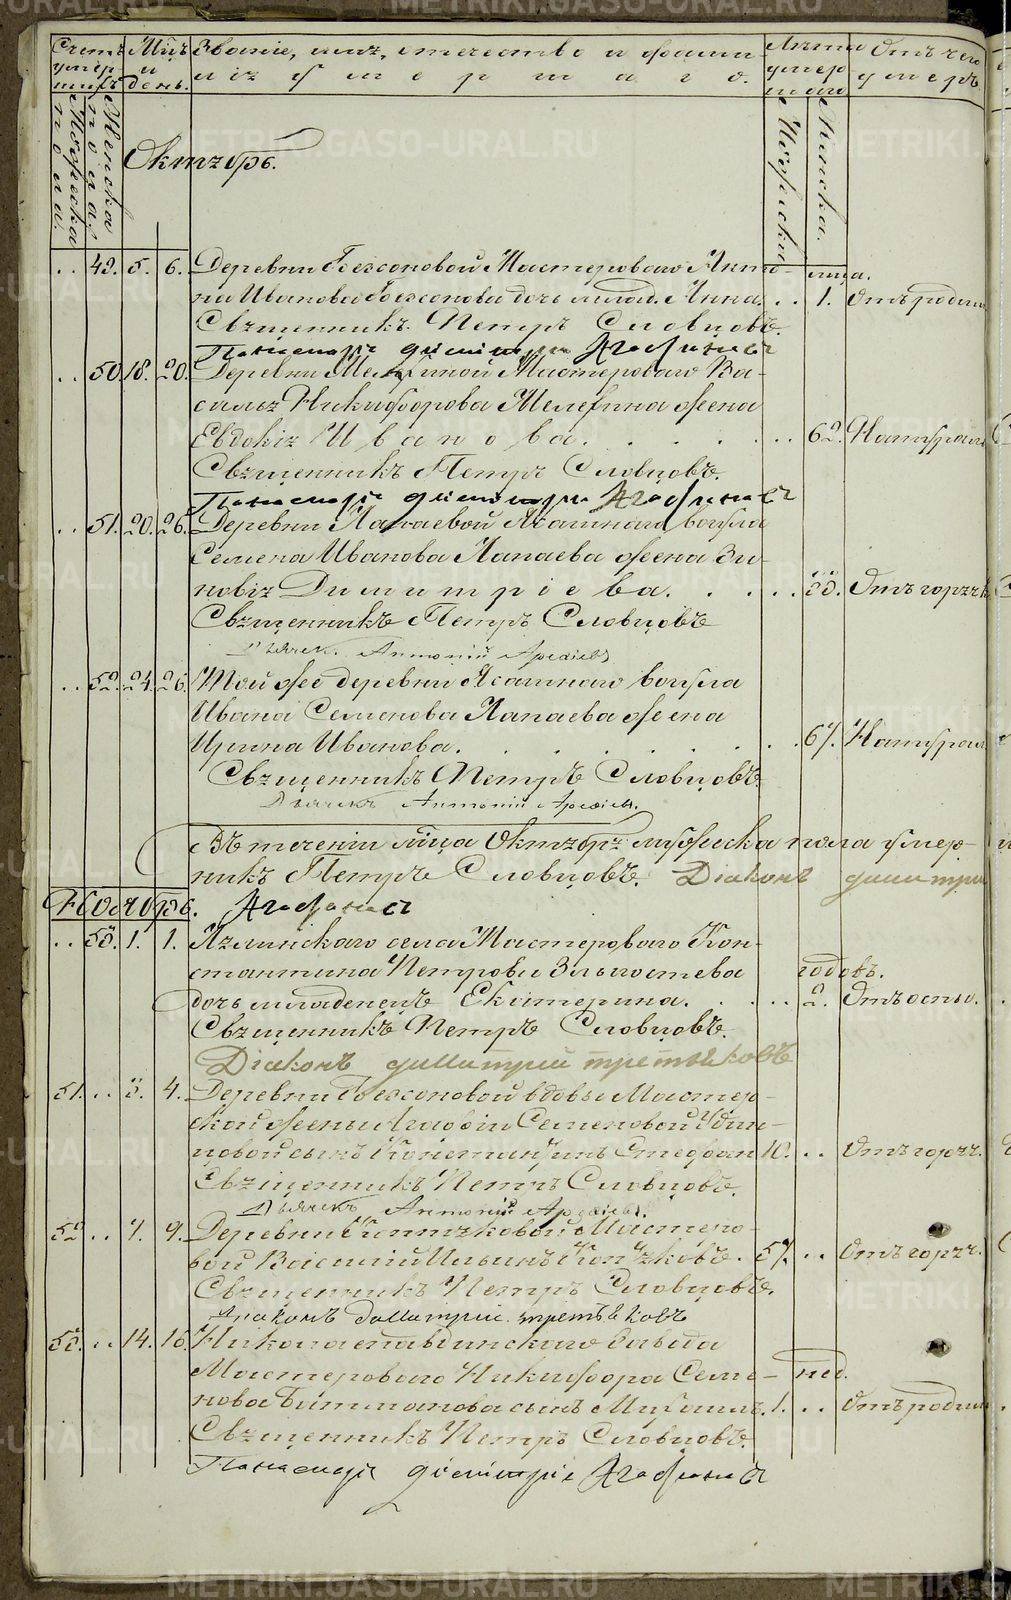 Счетъ умер шихъ
Мцъ и день.
Званіе, имя, отчество и фамилія умершаго.
Лѣта умершаго
Отъ чего умеръ
Мужеска пола.
Женска пола.
Мужска
Женска.
Октябрь.
.. 49. 5. 6. Деревни Безсоновой Мастероваго Анто- мца.
на Иванова Безсонова дочь млад. Анна. .. 1. Отъ родим
Священникъ Петръ Словцовъ.
Пономарь Димитрій Агафоновъ
.. 50. 18. 20. Деревни Мелехиной Мастероваго Ва-
силья Никифорова Мелехина жена
Евдокія Иванова. .. 62. Натурал
Священникъ Петръ Словцовъ.
Пономарь Димитрій Агафоновъ
.. 51. 20. 26. Деревни Лапаевой Ясашнаго вогула
Семена Иванова Лапаева жена Зи-
новія Димитріева. .. 55. Отъ горяч
Священникъ Петръ Словцовъ
Дьячек. Антоній Арефіевъ
.. 52. 24. 26. Той же деревни Ясашнаго вогула
Ивана Семенова Лапаева жена
Ирина Иванова. .. 67. Натурал
Священникъ Петръ Словцовъ.
Дьячекъ Антоній Арефіевъ.
Въ теченіи мца Октября мужеска пола умер-
никъ Петръ Словцовъ. Діаконъ Димитри
Ноябрь. Агафоновъ
.. 53. 1. 1. Язвинскаго села Мастероваго Кон-
стантина Петрова годовъ.
дочь младенецъ Екатерина. .. 2. Отъ оспы.
Священникъ Петръ Словцовъ.
Діаконъ Димитрій Третьяковъ
51. .. 3. 4. Деревни Безсоновой вдовы Мастер-
ской жены Агафіи Семеновой Один-
цовой сынъ Константинъ Стефан 10. .. Отъ горяч.
Священникъ Петръ Словцовъ.
Дьячекъ Антоній Арефіевъ.
52. .. 7. 9. Деревни Копчиковой Мастеро-
вой Василій Ильинъ Копчиковъ. 57. .. Отъ горяч.
Священникъ Петръ Словцовъ.
Діаконъ Димитрій Третьяковъ
53. .. 14. 16. Николаепавдинскаго Завода
Мастероваго Никифора Семе- нед.
нова Битиманова сынъ Михаилъ. 1. .. Отъ родим
Священникъ Петръ Словцовъ.
Пономарь Димитрій Агафоновъ
METRIKI.GASO-URAL.RU